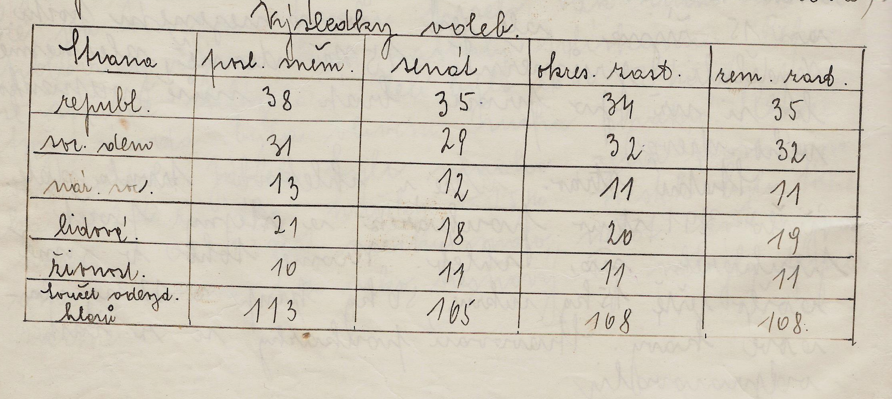 Výsledky voleb.
Strana posl. sněm. senát okres. zast. zem. zast.
republ. 38 35 34 35
soc. demo 31 29 32 32
nár. soc. 13 12 11 11
lidové. 21 18 20 19
živnost. 10 11 11 11
Součet odevzd.
hlasů 113 105 108 108.